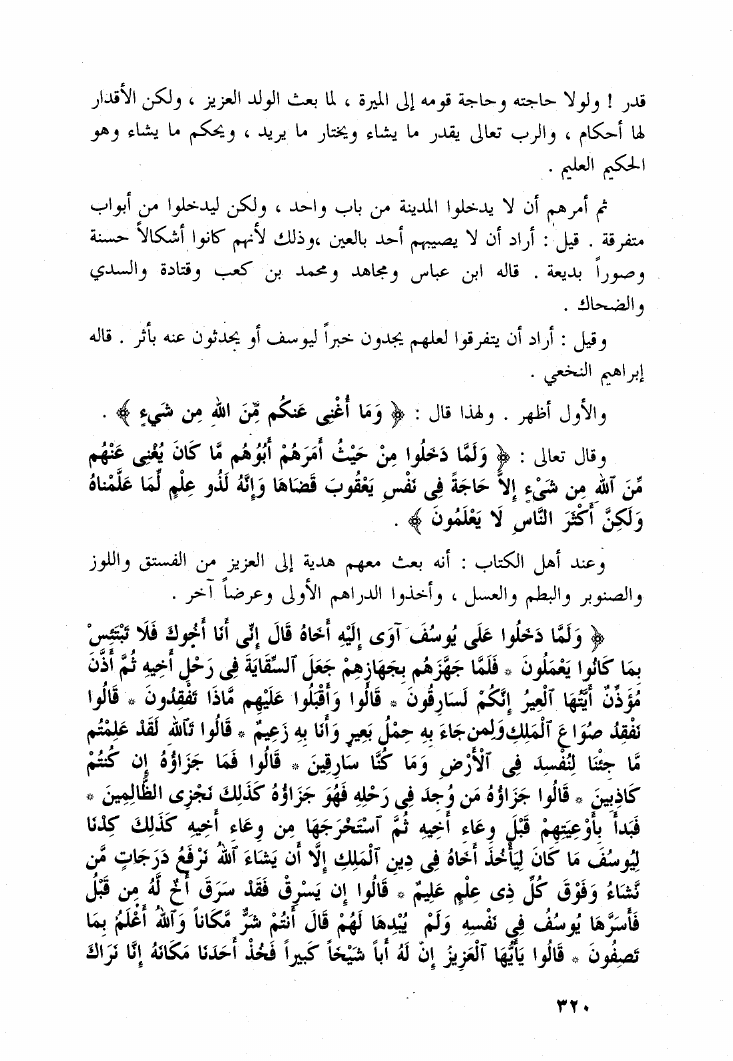 قدر ! ولولا حاجته وحاجة قومه إلى الميرة ، لما بعث الولد العزيز ، ولكن الأقدار
لها أحكام ، والرب تعالى يقدر ما يشاء ويختار ما يريد ، ويحكم ما يشاء وهو
الحكيم العليم .
ثم أمرهم أن لا يدخلوا المدينة من باب واحد ، ولكن ليدخلوا من أبواب
متفرقة . قيل : أراد أن لا يصيبهم أحد بالعين ،وذلك لأنهم كانوا أشكالاً حسنة
وصوراً بديعة . قاله ابن عباس ومجاهد ومحمد بن كعب وقتادة والسدي
والضحاك .
وقيل : أراد أن يتفرقوا لعلهم يجدون خبراً ليوسف أو يحدثون عنه بأثر . قاله
إبراهيم النخعي .
والأول أظهر . ولهذا قال : ﴿ وَمَا أُغْنِى عَنكُم مِّنَ اللهِ مِن شَيءٍ ﴾ .
وقال تعالى : ﴿ وَلَمَّا دَخَلُوا مِنْ حَيْثُ أَمَرَهُمْ أَبُوهُم مَّا كَانَ يُغْنِى عَنْهُم
مِّنَ ٱللهِ مِن شَىْءٍ إِلاَّ حَاجَةً فِى نَفْسِ يَعْقُوبَ قَضَاهَا وَإِنَّهُ لَذُو عِلْمٍ لِّمَا عَلَّمْنَاهُ
وَلَكِنَّ أَكْثَرَ النَّاسِ لَا يَعْلَمُونَ ﴾ .
وعند أهل الكتاب : أنه بعث معهم هدية إلى العزيز من الفستق واللوز
والصنوبر والبطم والعسل ، وأخذوا الدراهم الأولى وعرضاً آخر .
﴿ وَلَمَّا دَخَلُوا عَلَى يُوسُفَ آوَى إِلَيْهِ أَخَاهُ قَالَ إِنِّى أَنَا أَخُوكَ فَلَا تَبْتَئِسْ
بِمَا كَانُوا يَعْمَلُونَ * فَلَمَّا جَهَّزَهُم بِجَهَازِهِمْ جَعَلَ ٱلسِّقَايَةَ فِى رَحْلِ أَخِيهِ ثُمَّ أَذَّنَ
مُؤَذِّنٌ أَيَّتُهَا ٱلْعِيرُ إِنَّكُمْ لَسَارِقُونَ * قَالُوا وَأَقْبَلُوا عَلَيْهِم مَّاذَا تَفْقِدُونَ * قَالُوا
نَفْقِدُ صُوَاعَ ٱلْمَلِكِ وَلِمن جَاءَ بِهِ حِمْلُ بَعِيرٍ وَأَنَا بِهِ زَعِيمٌ * قَالُوا تَٱللهِ لَقَدْ عَلِمْتُم
مَّا جِئْنَا لِنُفْسِدَ فِى ٱلْأَرْضِ وَمَا كُنَّا سَارِقِينَ * قَالُوا فَمَا جَزَاؤُهُ إِن كُنتُمْ
كَاذِبِينَ * قَالُوا جَزَاؤُهُ مَن وُجِدَ فِى رَحْلِهِ فَهُوَ جَزَاؤُهُ كَذَلِكَ نَجْزِى الظَّالِمِينَ *
فَبَدأَ بِأَوْعِيَتِهِمْ قَبْلَ وِعَاءِ أَخِيهِ ثُمَّ ٱسْتَخْرَجَهَا مِن وِعَاءِ أَخِيهِ كَذَلِكَ كِدْنَا
لِيُوسُفَ مَا كَانَ لِيَأْخُذَ أَخَاهُ فِى دِينِ ٱلْمَلِكِ إِلَّا أَن يَشَاءَ ٱللهُ نَرْفَعُ دَرَجَاتٍ مَّن
نَّشَاءُ وَفَوْقَ كُلِّ ذِى عِلْمٍ عَلِيمٌ * قَالُوا إِن يَسْرِقْ فَقَدْ سَرَقَ أَخٌ لَّهُ مِن قَبْلُ
فَأَسَرَّهَا يُوسُفُ فِى نَفْسِهِ وَلَمْ يُبْدِهَا لَهُمْ قَالَ أَنتُمْ شَرٌّ مَّكَاناً وَٱللهُ أَعْلَمُ بِمَا
تَصِفُونَ * قَالُوا يَأَيُّهَا ٱلْعَزِيزُ إِنَّ لَهُ أَباً شَيْخاً كَبِيراً فَخُذْ أَحَدَنَا مَكَانَهُ إِنَّا نَرَاكَ
٣٢٠